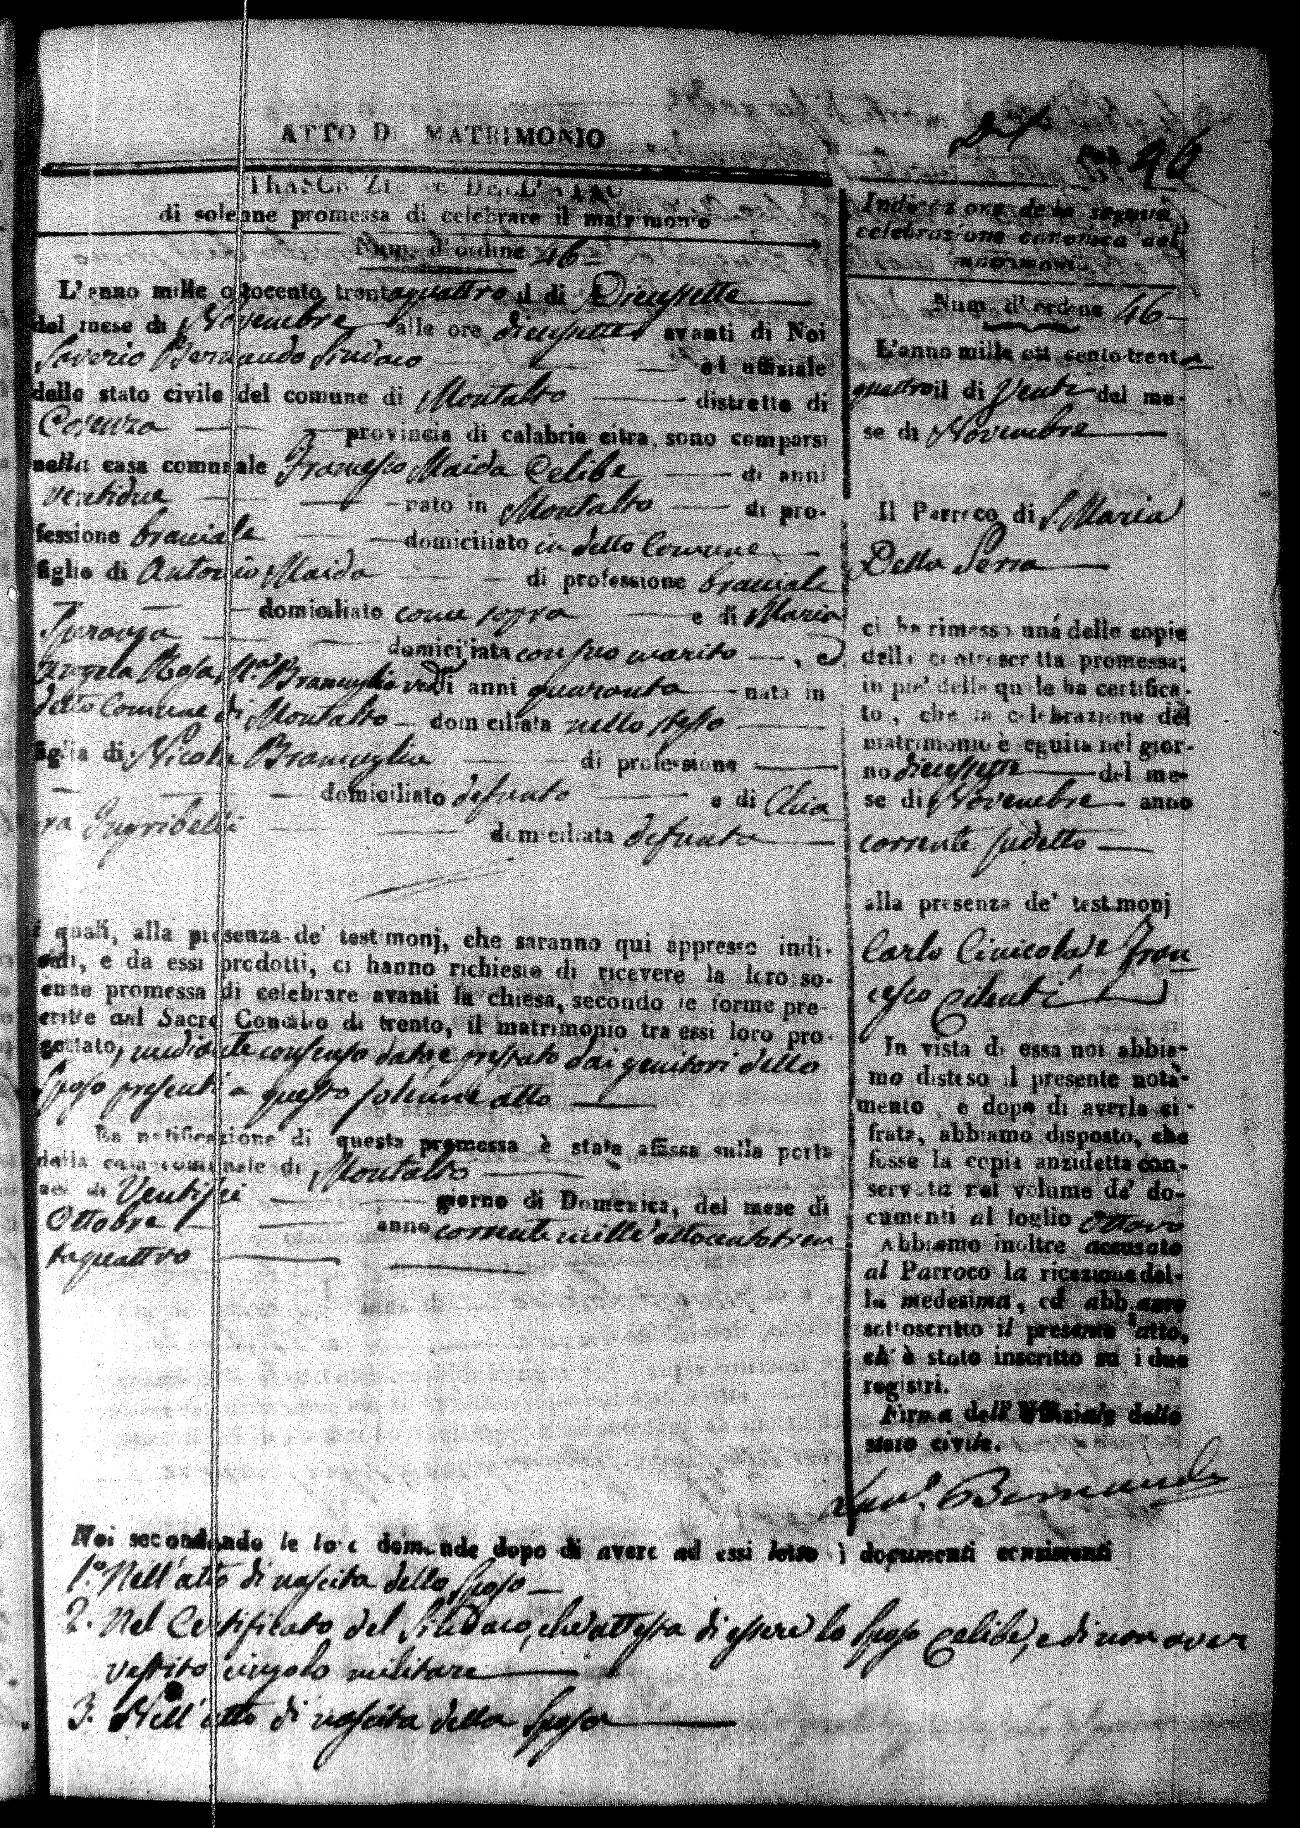 ATTO DI MATRIMONIO
46
TRASCRIZIONE DELL'ATTO
di solenne promessa di celebrare il matrimonio
Num. d'ordine 46
L'anno mille ottocento trentaquattro il di Diecissette
del mese di Novembre alle ore diecissette avanti di Noi
Saverio Bernaudo Sindaco ed uffiziale
dello stato civile del comune di Montalto distretto di
Cosenza provincia di calabria citra, sono comparsi
nella casa comunale Francesco Maida Celibe di anni
ventidue nato in Montalto di pro-
fessione bracciale domiciliato in detto Comune
figlio di Antonio Maida di professione bracciale
domiciliato come sopra e di Maria
domiciliata con suo marito, ed
Angela Rosa Ma. Bramuglio di anni quaranta nata in
detto Comune di Montalto domiciliata nello stesso
figlia di Nicola Bramuglia di professione
domiciliato defunto e di Chia
ra domiciliata defunta
i quali, alla presenza de' testimonj, che saranno qui appresso indi-
cati, e da essi prodotti, ci hanno richiesto di ricevere la loro so-
enne promessa di celebrare avanti la chiesa, secondo le forme pre-
critte dal Sacro Concilio di trento, il matrimonio tra essi loro pro-
gettato, mediante consenso dato, e prestato dai genitori dello
Sposo presenti a questo solenne atto
La notificazione di questa promessa è stata affissa sulla porta
della casa comunale di Montalto
nel di Ventisei giorno di Domenica, del mese di
Ottobre anno corrente mille ottocentotren
taquattro
Indicazione della seguita
celebrazione canonica del
matrimonio
Num. d'ordine 46
L'anno mille ottocento trenta
quattro il di Venti del me-
se di Novembre
Il Parroco di S. Maria
Della Serra
ci ha rimesso una delle copie
della controscritta promessa;
in piè della quale ha certifica-
to, che la celebrazione del
matrimonio è seguita nel gior-
no diecissette del me-
se di Novembre anno
corrente sudetto
alla presenza de' testimonj
Carlo e Fran
cesco
In vista di essa noi abbia-
mo disteso il presente nota-
mento, e dopo di averla ci-
frata, abbiamo disposto, che
fosse la copia anzidetta con-
servata nel volume de' do-
cumenti al foglio Ottavo
Abbiamo inoltre accusato
al Parroco la ricezione del-
la medesima, ed abbiamo
sottoscritto il presente atto,
ch' è stato inscritto su i due
registri.
Firma dell' Uffiziale dello
stato civile.
Sav.o Bernaudo
Noi secondando le loro domande dopo di avere ad essi letto i documenti consistenti
1.° Nell'atto di nascita dello Sposo
2. Nel Certificato del Sindaco, che attesta di essere lo Sposo Celibe, e di non aver
vestito cingolo militare
3. Nell'atto di nascita della Sposa